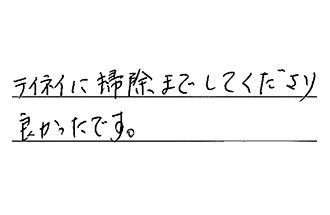 テイネイに掃除までしてくださり
良かったです。